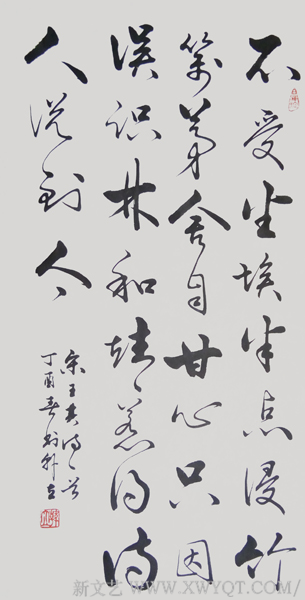 不受尘埃半点侵竹
篱茅舍自甘心只因
误识林和靖惹得诗
人说到今
宋王淇诗一首
丁酉春
新文艺 WWW.XWYQT.COM/